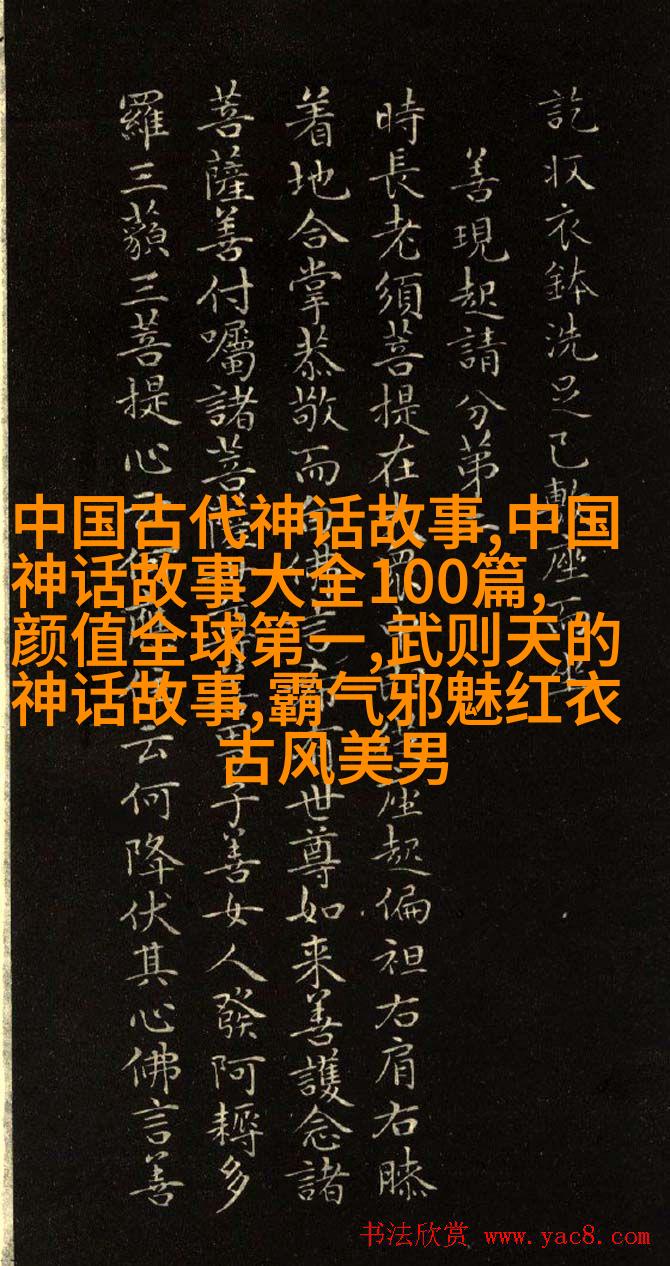 訖収衣鉢洗足已敷座而
善現起請分第
時長老須菩提在座起偏袒右肩右膝
着地合掌恭敬而世尊如来善護念諸
菩薩善付囑諸菩子善女人發阿耨多
羅三藐三菩提心云何降伏其心佛言善
中国古代神话故事,中国
神话故事大全100篇,
颜值全球第一,武则天的
神话故事,霸气邪魅红衣
古风美男
书法欣赏 www.yac8.com